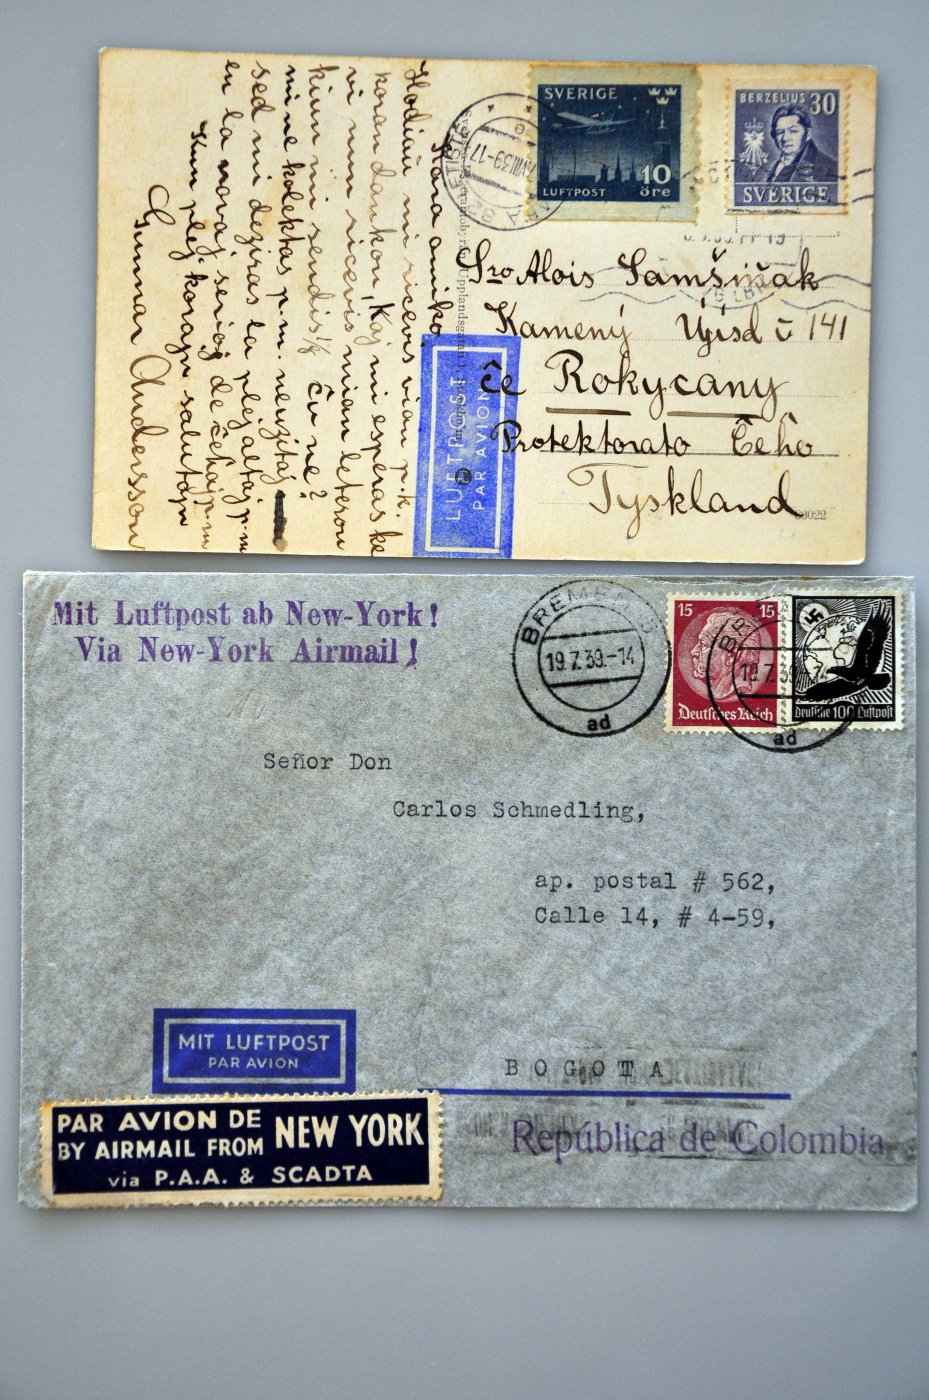 SVERIGE
LUFTPOST
10
öre
BERZELIUS 30
SVERIGE
Kara amiko.
Hodiaŭ mi ricevis vian p.k.
koran dankon, Kaj mi esperas ke
vi nun ricevis mian leteron
kiun mi sendis 1/8 ĉu ne?
mi ne kolektas p.m. neuzitaj
sed mi deziras la plej altaj p.m
en la novaj serioj de ĉeĥaj p.m
Kun plej korajn salutojn
Gunnar Andersson
Sro Alois Samšiňak
Kamený Újisd č 141
ĉe Rokycany
Protektorato Ĉeĥo
Tyskland
LUFTPOST
PAR AVION
Mit Luftpost ab New-York!
Via New-York Airmail!
BREMEN
19.7.39.-14
ad
15 15
Deutsches Reich
Deutsche 100 Luftpost
ad
Señor Don
Carlos Schmedling,
ap. postal # 562,
Calle 14, # 4-59,
BOGOTA
República de Colombia
MIT LUFTPOST
PAR AVION
PAR AVION DE
BY AIRMAIL FROM NEW YORK
via P.A.A. & SCADTA